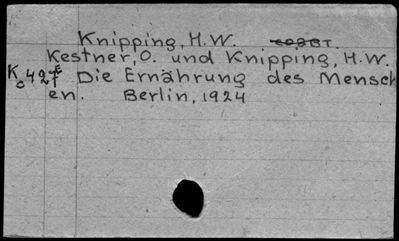 Knipping, H.W.
Kestner, O. und Knipping, H.W.
Kc427E Die Ernährung des Mensch
en. Berlin, 1924